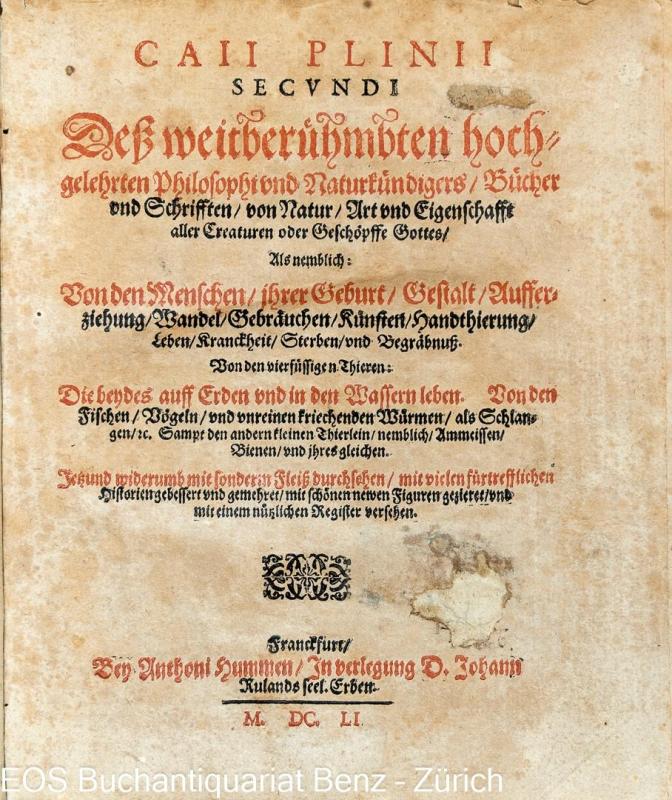 CAII PLINII
SECVNDI
Deß weitberühmbten hoch-
gelehrten Philosophi vnd Naturkündigers / Bücher
vnd Schrifften / von Natur / Art vnd Eigenschafft
aller Creaturen oder Geschöpffe Gottes /
Als nemblich:
Von den Menschen / jhrer Geburt / Gestalt / Auffer-
ziehung / Wandel / Gebräuchen / Künsten / Handthierung /
Leben / Kranckheit / Sterben / vnd Begräbnuß.
Von den vierfüssigen Thieren:
Die beydes auff Erden vnd in den Wassern leben. Von den
Fischen / Vögeln / vnd vnreinen kriechenden Würmen / als Schlan-
gen / ꝛc. Sampt den andern kleinen Thierlein / nemblich / Ammeissen /
Bienen / vnd jhres gleichen.
Jetzund widerumb mit sonderm Fleiß durchsehen / mit vielen fürtrefflichen
Historien gebessert vnd gemehret / mit schönen newen Figuren gezieret / vnd
mit einem nützlichen Register versehen.
Franckfurt /
Bey Anthoni Hummen / In verlegung D. Johann
Rulands seel. Erben.
M. DC. LI.
EOS Buchantiquariat Benz - Zürich